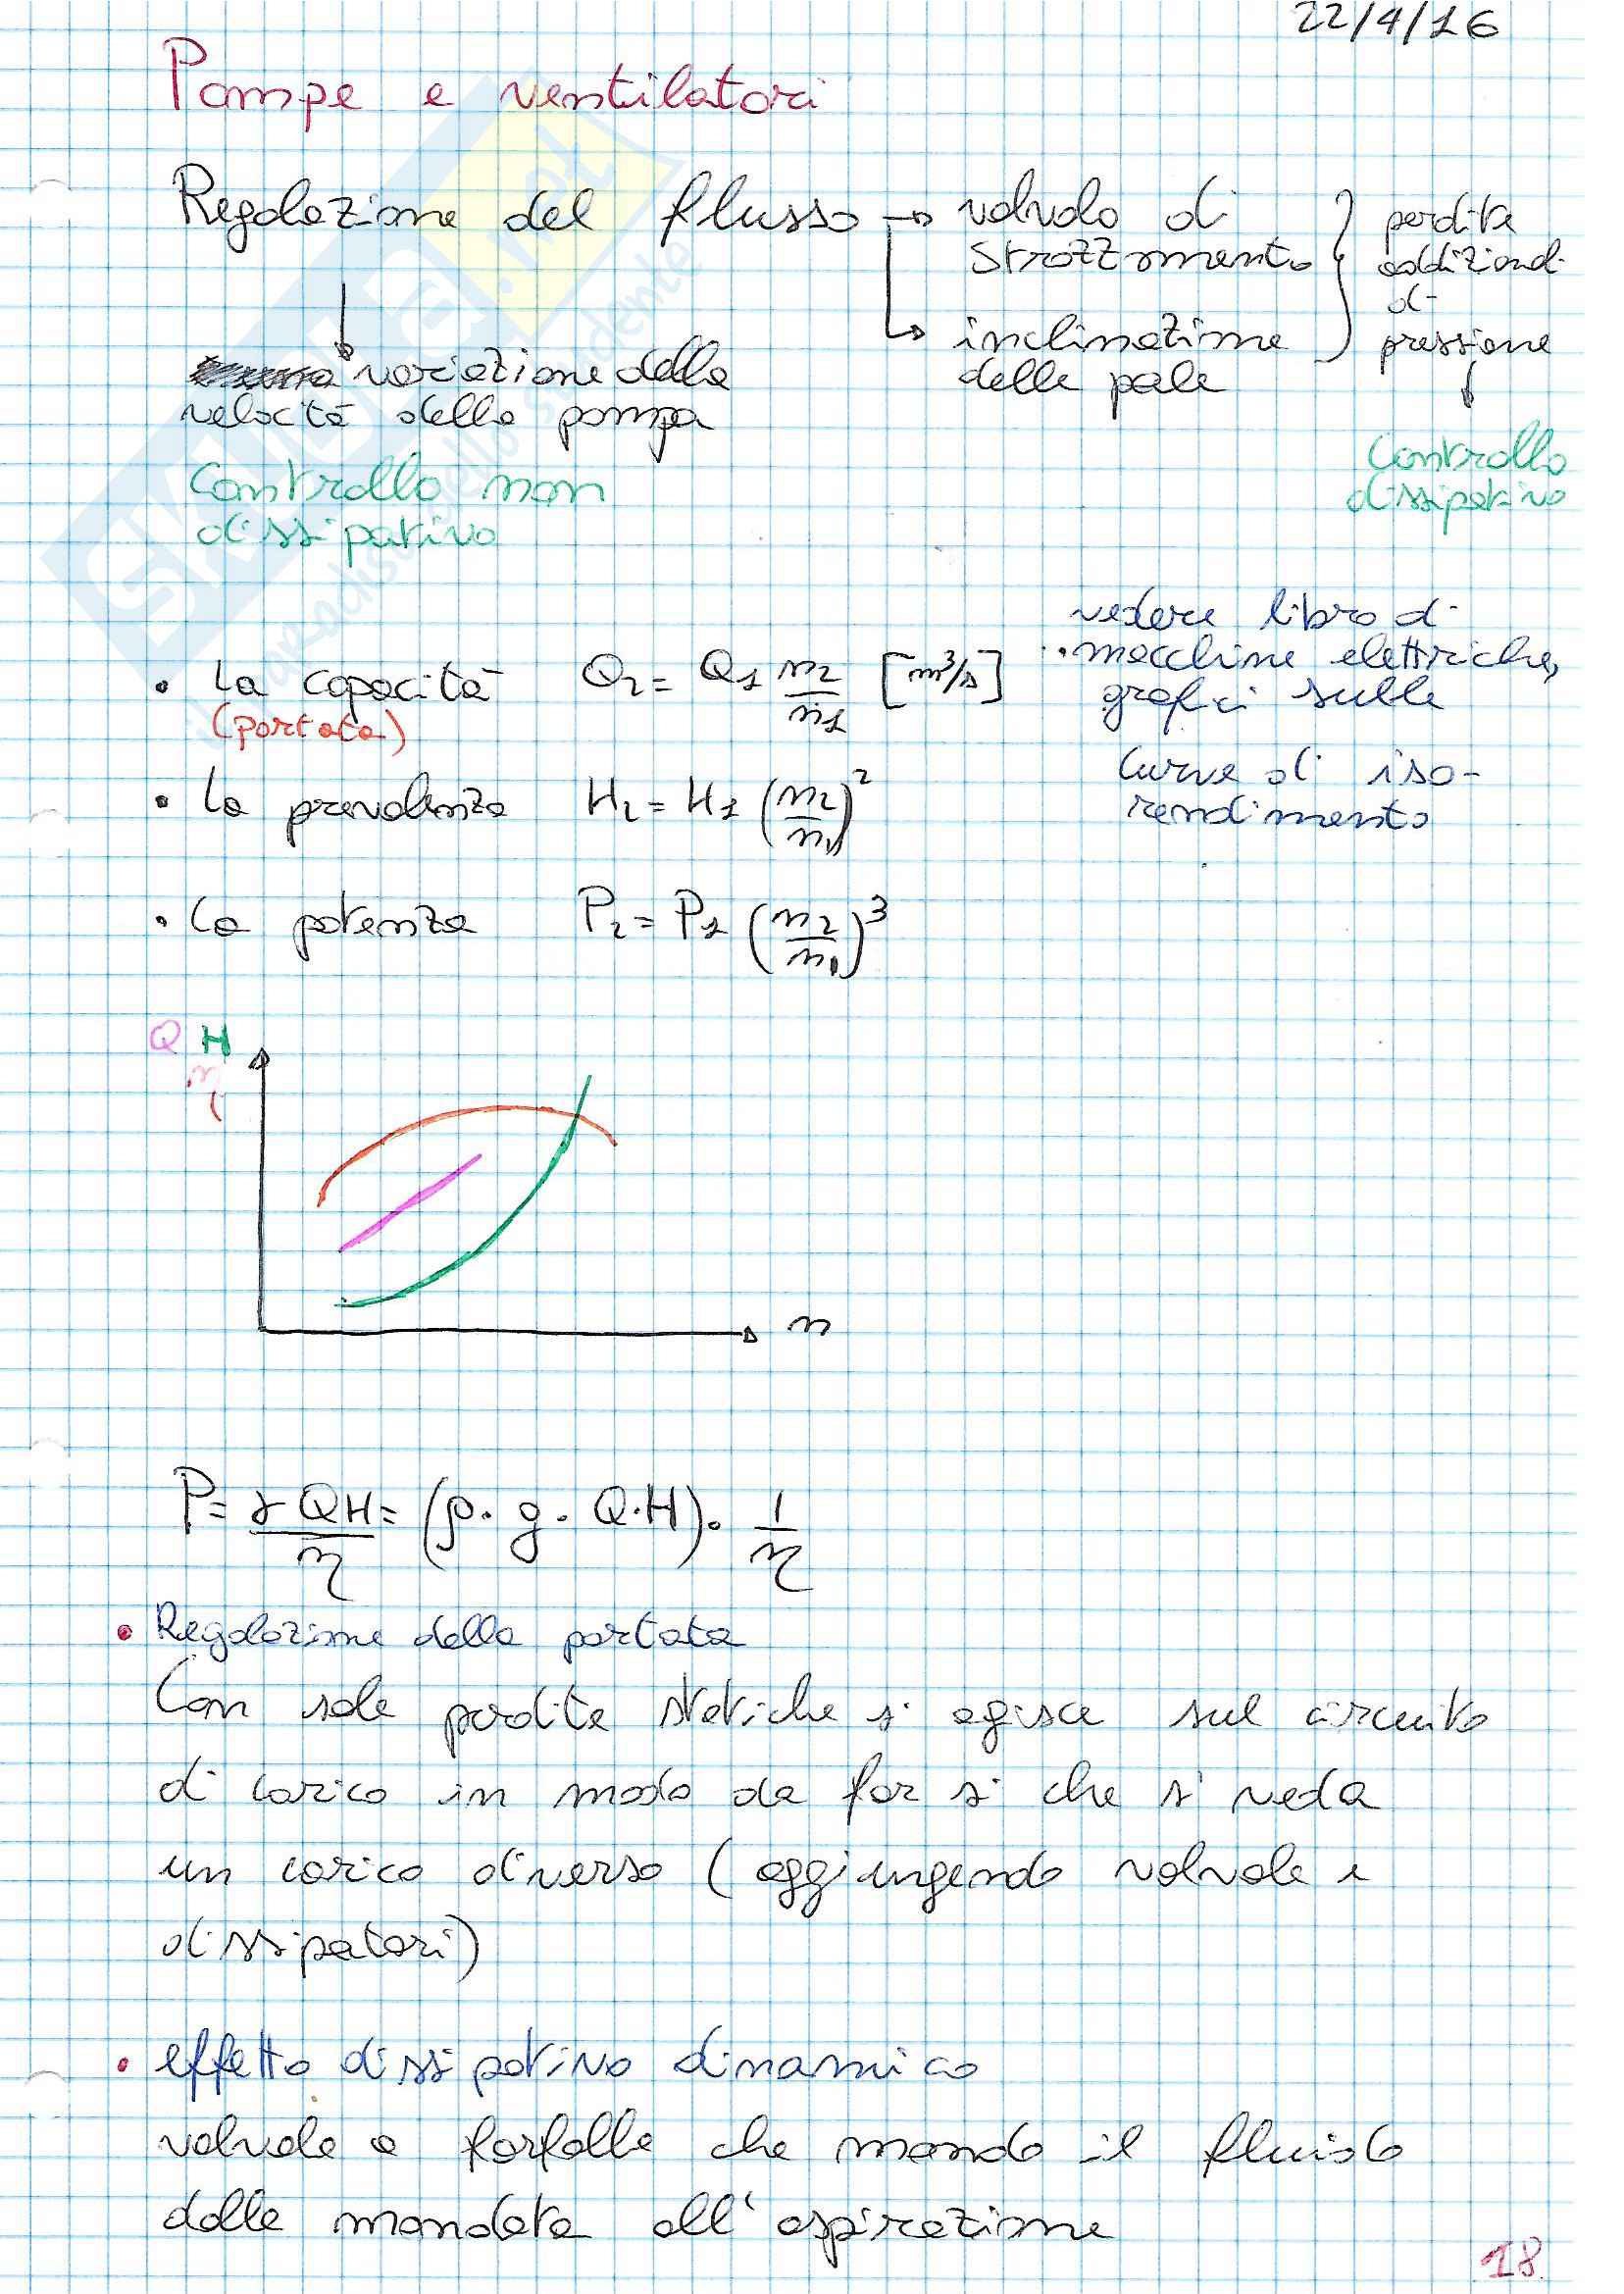 22/4/16
Pompe e ventilatori
Regolazione del flusso → valvola di
strozzamento
inclinazione
delle pale
perdite
addizionali
di
pressione
Controllo
dissipativo
variazione della
velocità della pompa
Controllo non
dissipativo
vedere libro di
macchine elettriche,
grafici sulle
curve di iso-
rendimento
• la capacità Q2 = Q1 n2/n1 [m³/s]
(portata)
• la prevalenza H2 = H1 (n2/n1)²
• la potenza P2 = P1 (n2/n1)³
Q H
η
n
P = γQH/η = (ρ · g · Q·H) · 1/η
• Regolazione della portata
Con sole perdite statiche si agisce sul circuito
di carico in modo da far si che si veda
un carico diverso (aggiungendo valvole e
dissipatori)
• effetto dissipativo dinamico
valvole a farfalla che manda il fluido
dalla mandata all'aspirazione
18
SKUOLA.net